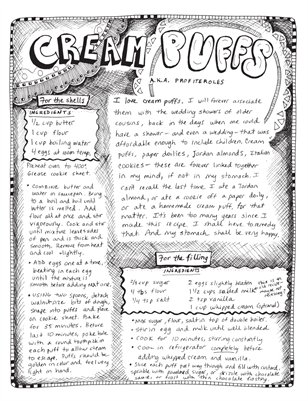 CREAM PUFFS
A.K.A. PROFITEROLES
For the shells
INGREDIENTS
1/2 cup butter
1 cup flour
1 cup boiling water
4 eggs at room temp.
Preheat oven to 400°.
Grease cookie sheet.
• COMBINE butter and
water in saucepan. Bring
to a boil and boil until
butter is melted. Add
flour all at once and stir
vigorously. Cook and stir
until mixture leaves sides
of pan and is thick and
smooth. Remove from heat
and cool slightly.
• ADD eggs one at a time,
beating in each egg
until the mixture is
smooth before adding next one.
• USING two spoons, detach
walnut size bits of dough,
shape into puffs and place
on cookie sheet. Bake
for 35 minutes. Before
last 10 minutes, poke hole
with a round toothpick in
each puff to allow steam
to escape. Puffs should be
golden in color and feel very
light in hand.
I love cream puffs, I will forever associate
them with the wedding showers of older
cousins, back in the days when one could
have a shower - and even a wedding - that was
affordable enough to include children. Cream
puffs, paper doilies, Jordan almonds, Italian
cookies - these are forever linked together
in my mind, if not in my stomach. I
can't recall the last time I ate a Jordan
almond, or ate a cookie off a paper doily,
or ate a homemade cream puff, for that
matter. It's been too years since I
made this recipe. I shall have to remedy
that. And my stomach shall be very happy.
For the filling
INGREDIENTS
3/4 cup sugar
1/3 cup flour
1/4 tsp salt
2 eggs slightly beaten
1 1/2 cups scalded milk
2 tsp vanilla
1 cup whipped cream (optional)
• MIX sugar, flour, salt in top of double boiler.
• Stir in egg and milk until well blended.
• COOK for 10 minutes, stirring constantly.
• Cool in refrigerator completely before
adding whipped cream and vanilla.
• Slice each puff part way through and fill with custard,
sprinkle with powdered sugar, or drizzle with chocolate
sauce or frost with thin chocolate frosting.